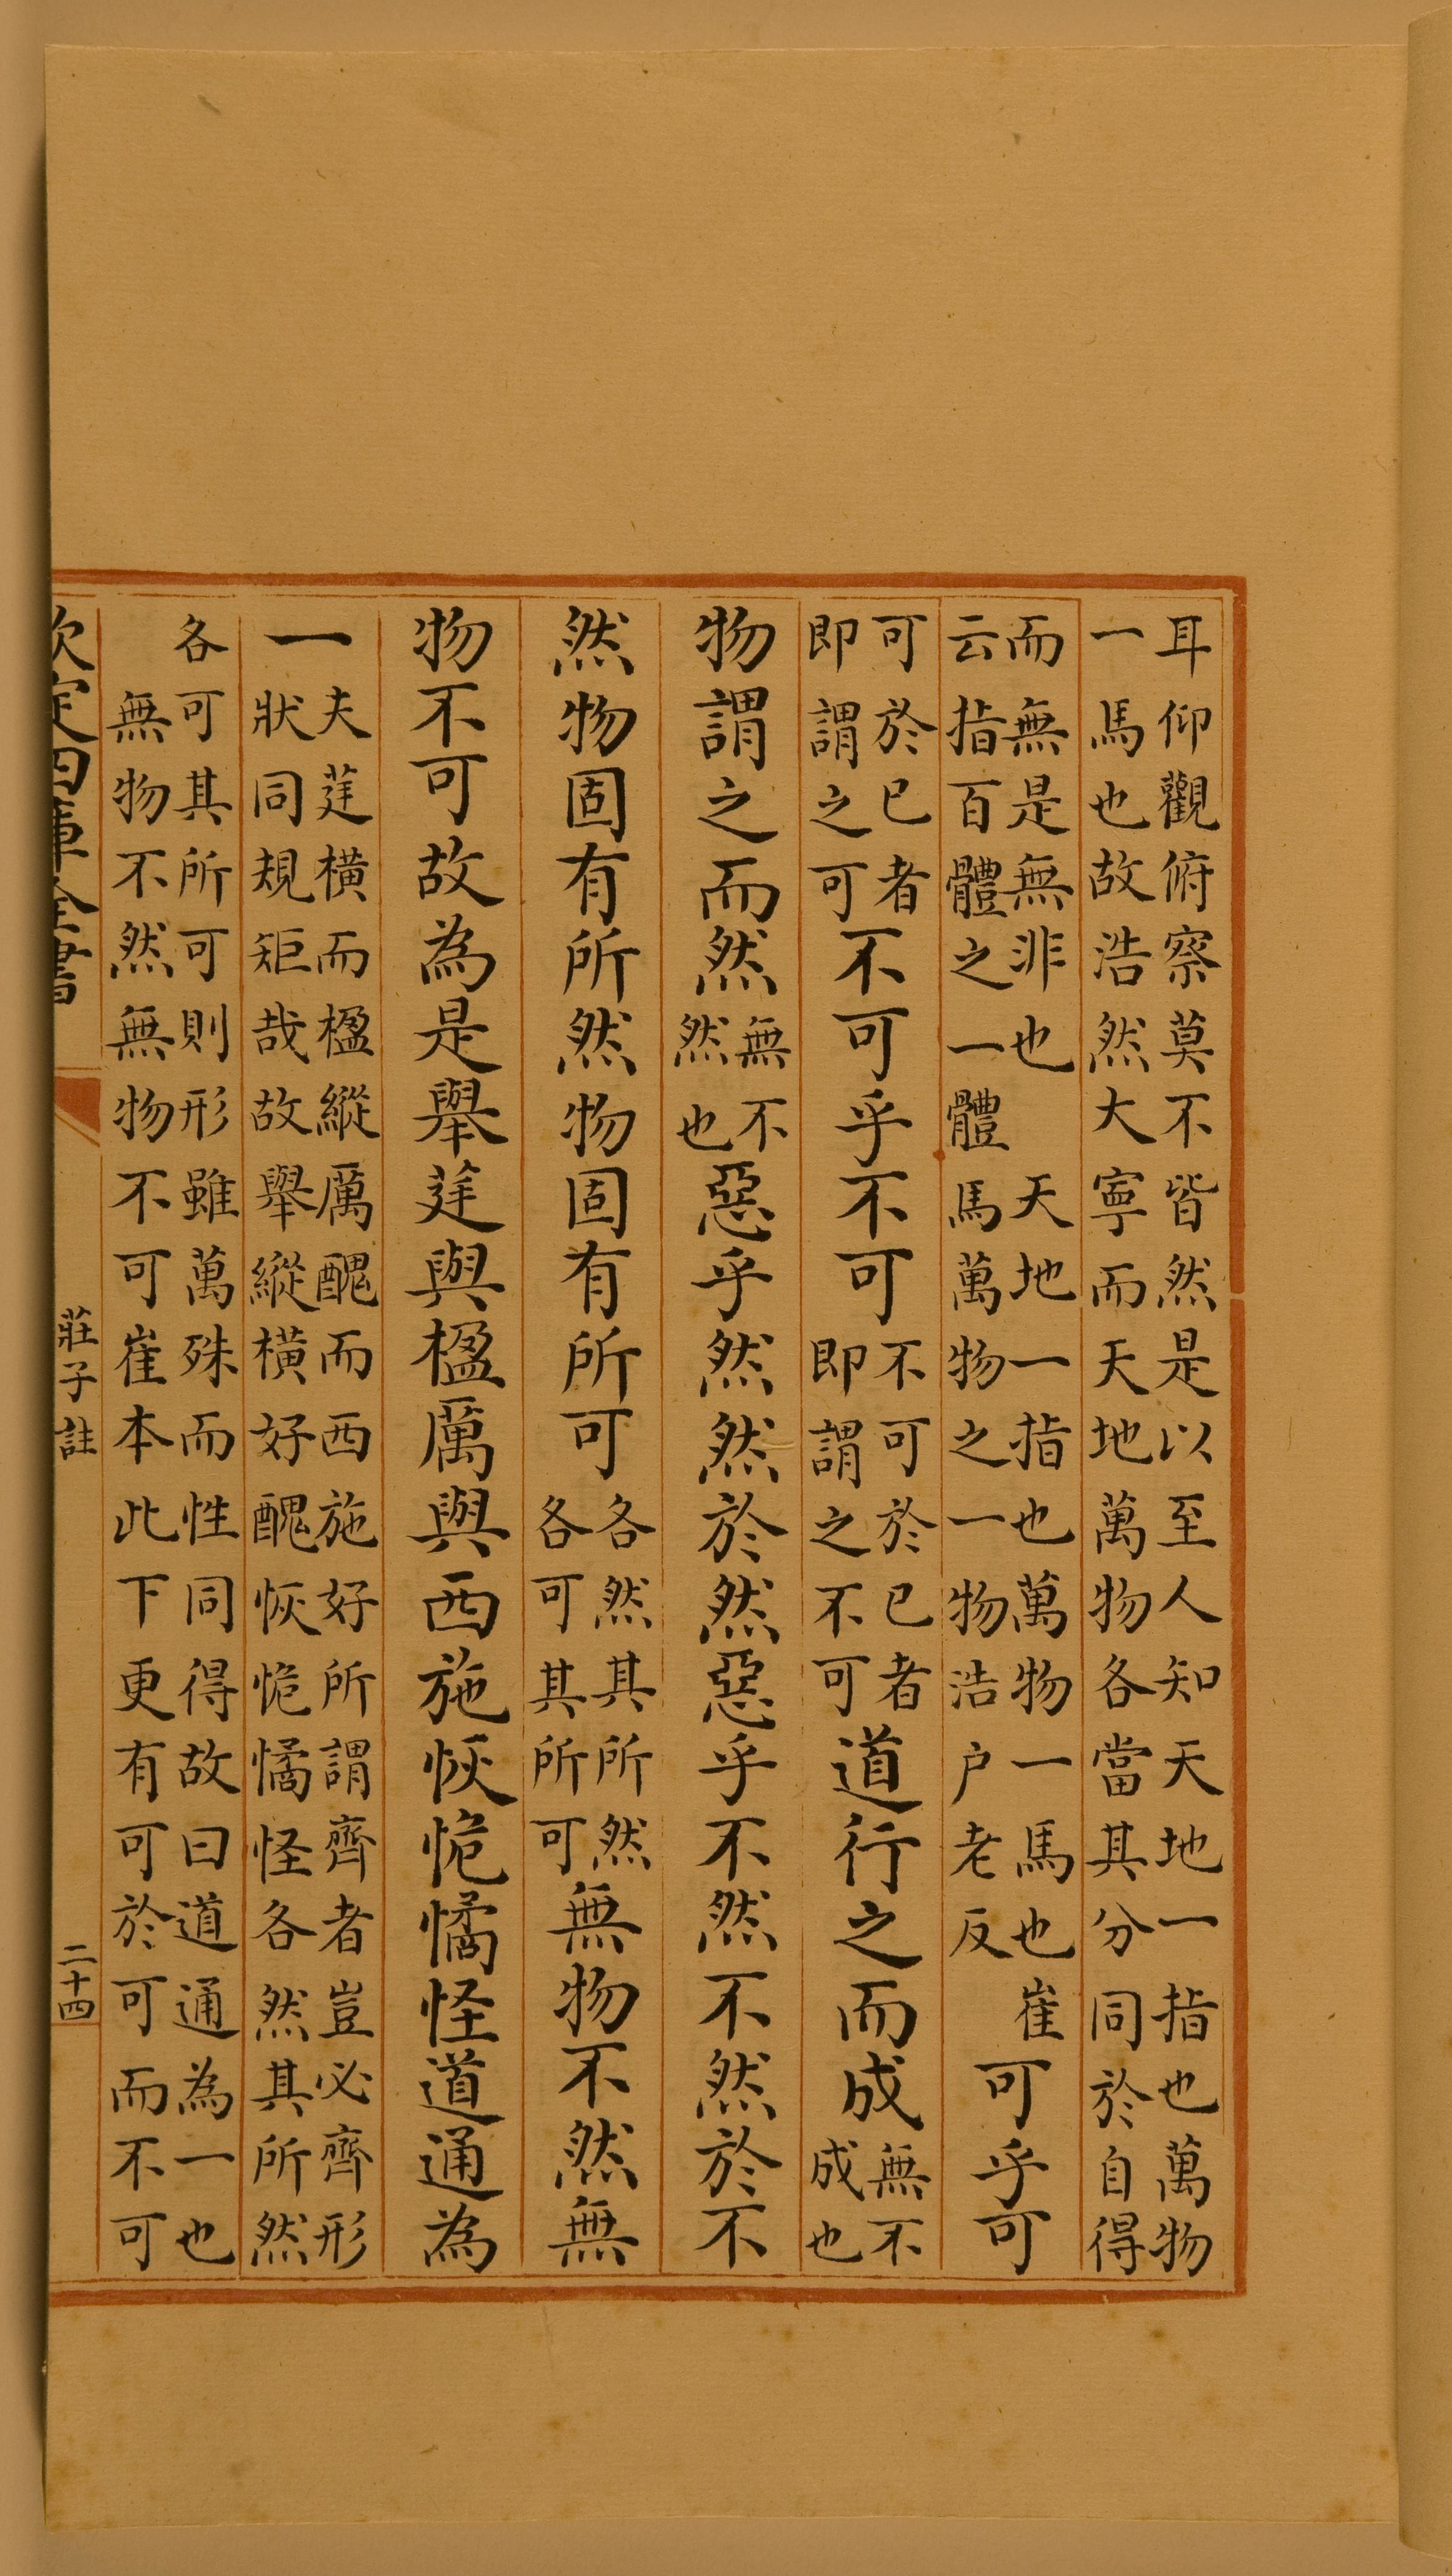 耳仰觀俯察莫不皆然是以至人知天地一指也萬物
一馬也故浩然大寧而天地萬物各當其分同於自得
而無是無非也　天地一指也萬物一馬也崔云指百體之一體馬萬物之一物浩户老反可乎可
可於已者即謂之可不可乎不可不可於已者即謂之不可道行之而成無不成也
物謂之而然無不然也惡乎然然於然惡乎不然不然於不
然物固有所然物固有所可各然其所然各可其所可無物不然無
物不可故為是舉莛與楹厲與西施恢恑憰怪道通為
一夫莛橫而楹縱厲醜而西施好所謂齊者豈必齊形狀同規矩哉故舉縱橫好醜恢恑憰怪各然其所然
各可其所可則形雖萬殊而性同得故曰道通為一也
無物不然無物不可崔本此下更有可於可而不可
欽定四庫全書
莊子註
二十四